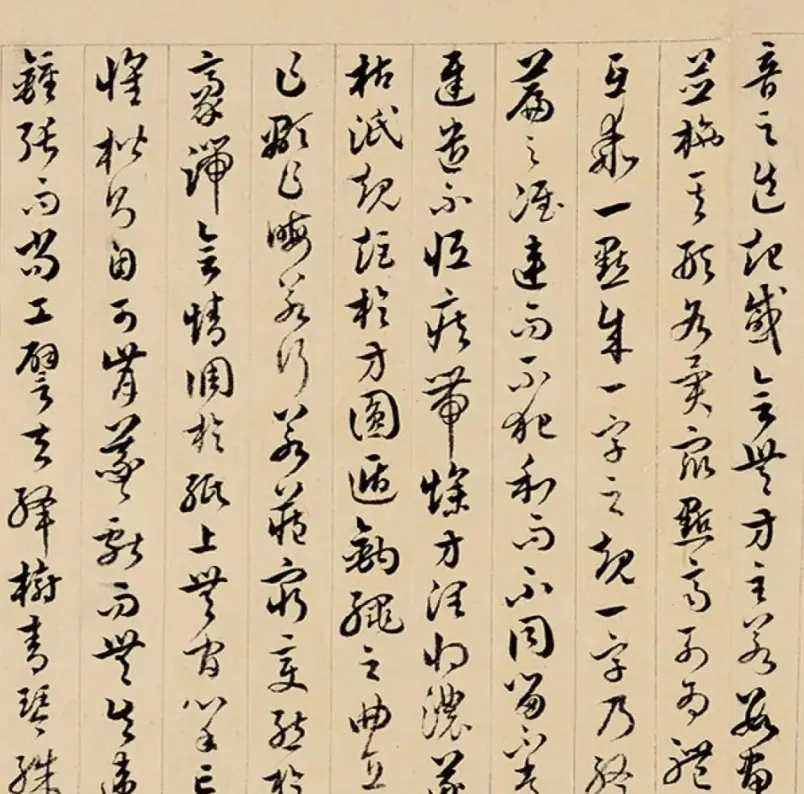 音之迭起感會無方至若數畫
並施其形各異衆點齊列為體
互乖一點成一字之規一字乃終
篇之准違而不犯和而不同留不常
遲遣不恒疾帶燥方潤將濃遂
枯泯規矩於方圓遁鉤繩之曲直
乍顯乍晦若行若藏窮變態於
豪端合情調於紙上無間心手忘
懷楷則自可背羲獻而無失違
鍾張而尚工譬夫絳樹青琴殊